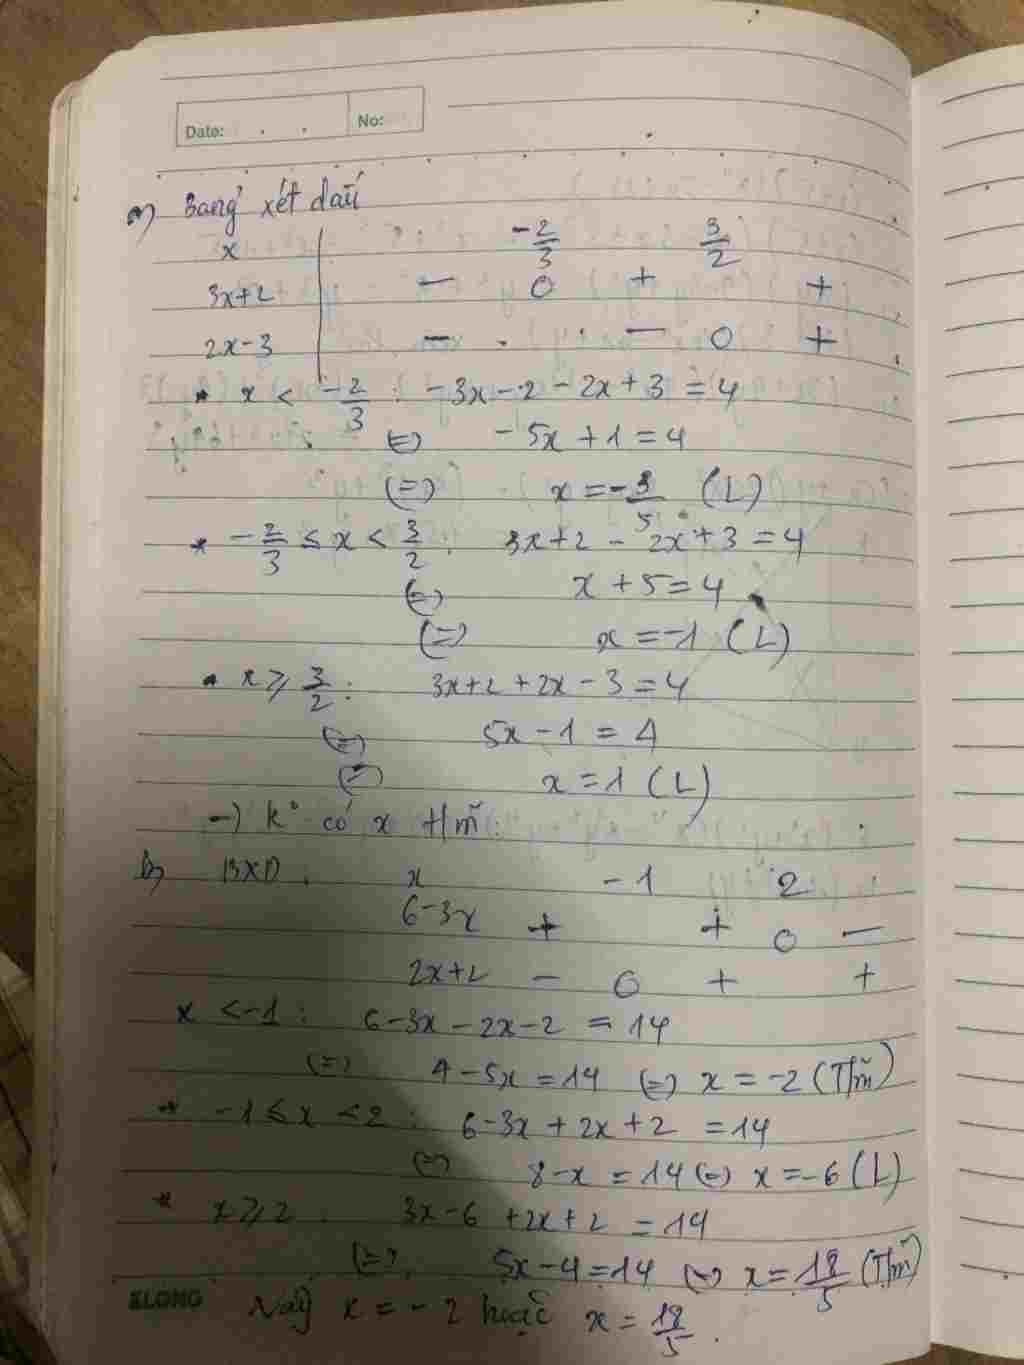 Date: . . No:
a) Bảng xét dấu
x -2/3 3/2
3x+2 - 0 + +
2x-3 - - 0 +
* x < -2/3 : -3x-2-2x+3 = 4
(=) -5x+1=4
(=) x = -3/5 (L)
* -2/3 ≤ x < 3/2 : 3x+2-2x+3=4
(=) x+5=4
(=) x=-1 (L)
* x ≥ 3/2 : 3x+2+2x-3=4
(=) 5x-1=4
(=) x=1 (L)
-) k° có x t/m̃.
b) BXD : x -1 2
6-3x + + 0 -
2x+2 - 0 + +
x <-1 : 6-3x-2x-2 = 14
(=) 4-5x=14 (=) x=-2 (T/m̃)
* -1 ≤ x < 2 : 6-3x+2x+2 =14
(=) 8-x=14 (=) x=-6 (L)
* x ≥ 2 : 3x-6+2x+2 =14
(=) 5x-4=14 (=) x=18/5 (T/m̃)
KLONG Vậy x=-2 hoặc x=18/5.